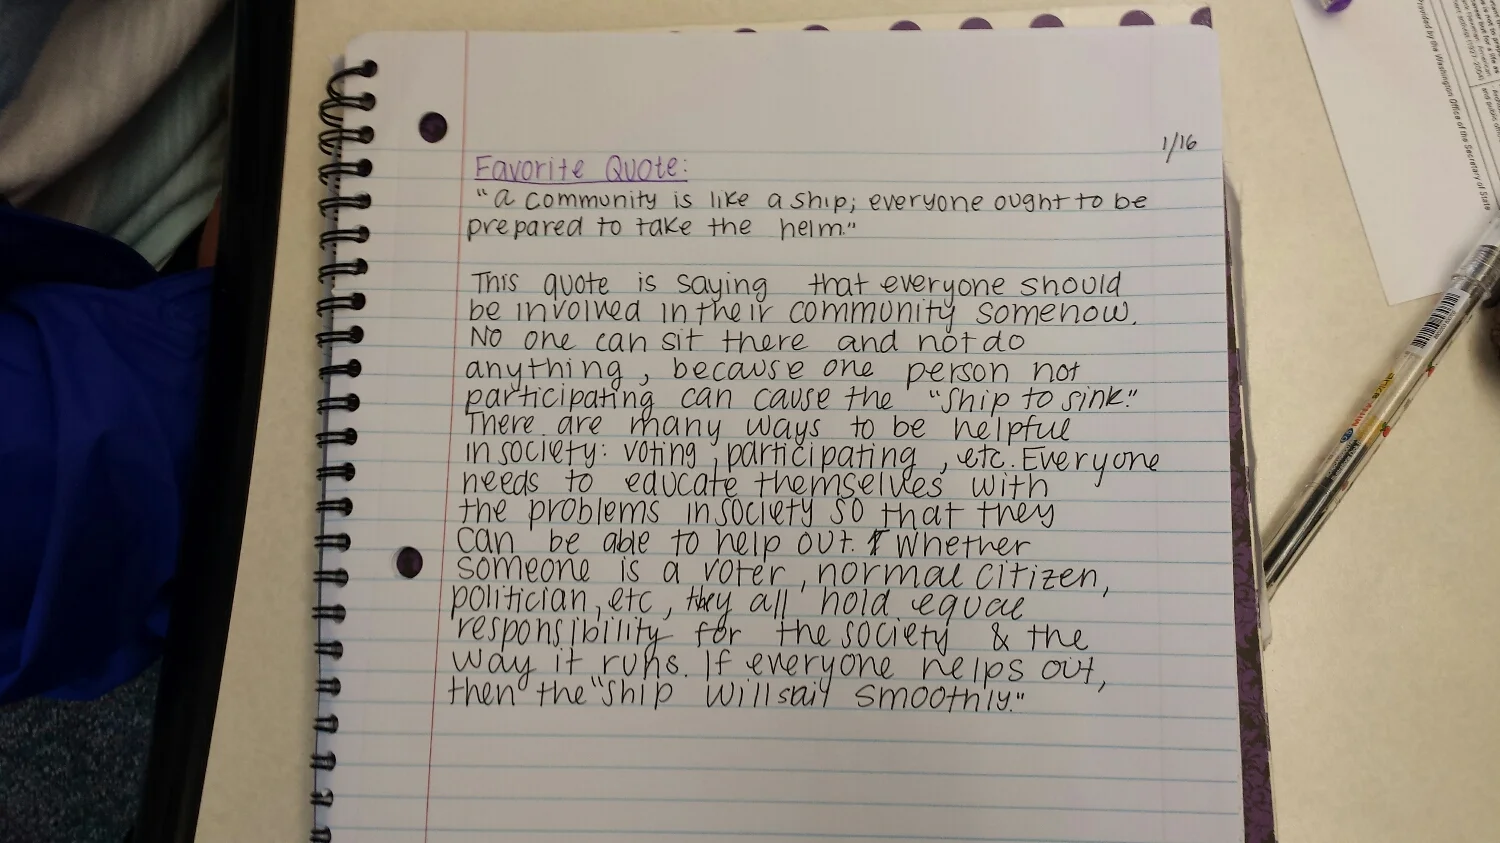 1/16
Favorite Quote:
"A community is like a ship; everyone ought to be
prepared to take the helm."
This quote is saying that everyone should
be involved in their community somehow.
No one can sit there and not do
anything, because one person not
participating can cause the "ship to sink."
There are many ways to be helpful
in society: voting, participating, etc. Everyone
needs to educate themselves with
the problems in society so that they
can be able to help out. Whether
someone is a voter, normal citizen,
politician, etc, they all hold equal
responsibility for the society & the
way it runs. If everyone helps out,
then the "ship will sail smoothly."
Provided by the Washington Office of the Secretary of State